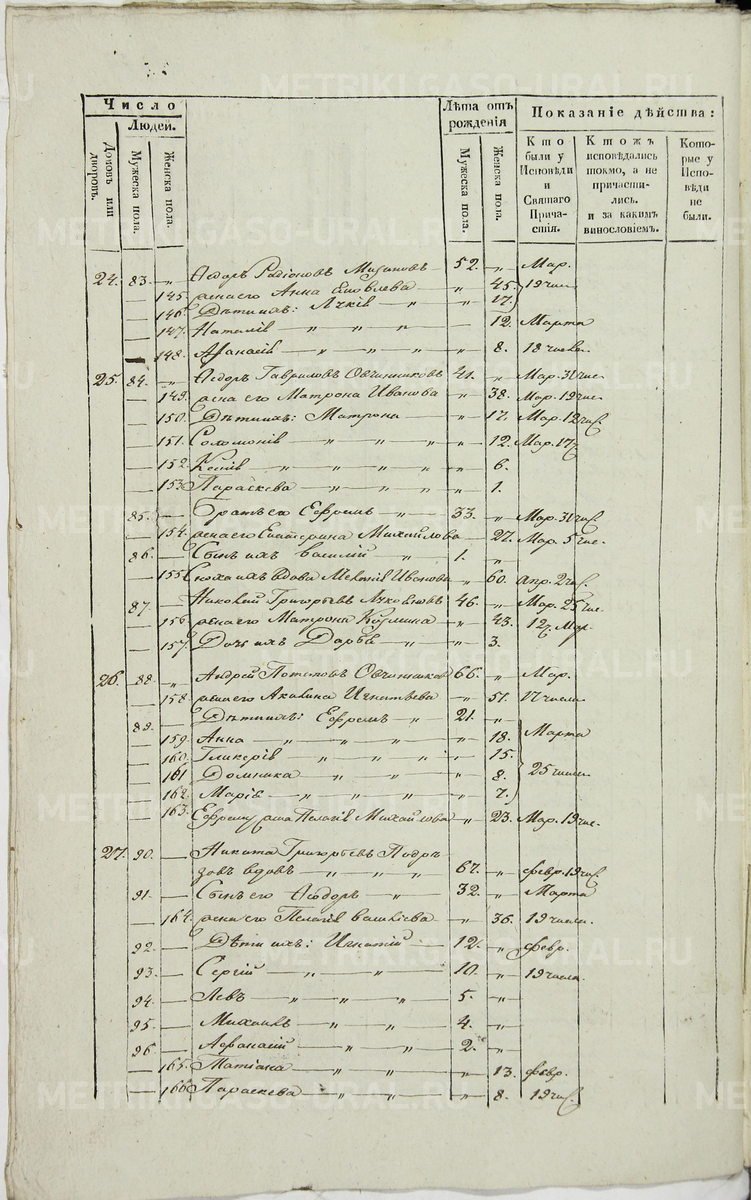 Число
Людей.
Домовъ или дворовъ.
Мужеска пола.
Женска пола.
Лѣта отъ рожденія
Мужеска пола.
Женска пола.
Показаніе дѣйства:
Кто были у Исповѣди и Святаго Причастія.
Ктожъ исповѣдались токмо, а не причастились. и за какимъ винословіемъ.
Которые у Исповѣди не были.
24. 83. „ Ѳедоръ Радіоновъ 52. „ Мар.
145. жена его Анна Яковлева „ 45. 19 числ
146. Дѣти ихъ: „ „ 17.
147. Наталія „ „ „ 12. Марта
148. „ „ „ „ 8. 18 числа
25. 84. „ Ѳедоръ Гавриловъ Овчинниковъ 41. „ Мар. 31 чис.
149. жена его Матрона Иванова „ 38. Мар. 19 чис.
150. Дѣти ихъ: Матрона „ 17. Мар. 12 чис.
151. Соломонія „ „ „ „ 12. Мар. 17
152. Ксенія „ „ „ „ 6.
153. Параскева „ „ „ „ 1.
85. Братъ его Ефремъ „ 33. „ Мар. 31 чис.
154. жена его Екатерина Михайлова „ 27. Мар. 5 чис.
86. Сынъ ихъ Василій „ 1. „
155. Сноха ихъ вдова Иванова „ 60. Апр. 2 чис.
87. Николай Григорьевъ 46. „ Мар. 25 чис.
156. жена его Матрона Козмина „ 43. 12 Мар.
157. Дочь ихъ Дарья „ „ 3.
26. 88. „ Андрей Потаповъ Овчинниковъ 66. „ Мар.
158. жена его Акилина Игнатьева „ 51. 17 числа
89. Дѣти ихъ: Ефремъ „ 21. „
159. Анна „ „ „ „ 18. Марта
160. Гликерія „ „ „ „ 15.
161. Домника „ „ „ 8. 25 числа
162. Марія „ „ „ „ 7.
163. Ефрему жена Пелагія Михайлова „ 23. Мар. 19 чис.
27. 90. Никита Григорьевъ
вдовъ „ „ „ 67. „ Февр. 19 чис.
91. Сынъ его Ѳеодоръ „ 32. „ Марта
164. жена его Пелагія „ 36. 19 числа
92. Дѣти ихъ: Игнатій 12. „ Февр.
93. Сергій „ „ 10. „ 19 числа
94. Левъ „ „ „ 5. „
95. Михаилъ „ „ 4. „
96. Аѳанасій „ „ 2. „
165. Татіана „ „ „ 13. Февр.
166. Параскева „ „ „ 8. 19 чис.
METRIKI.GASO-URAL.RU